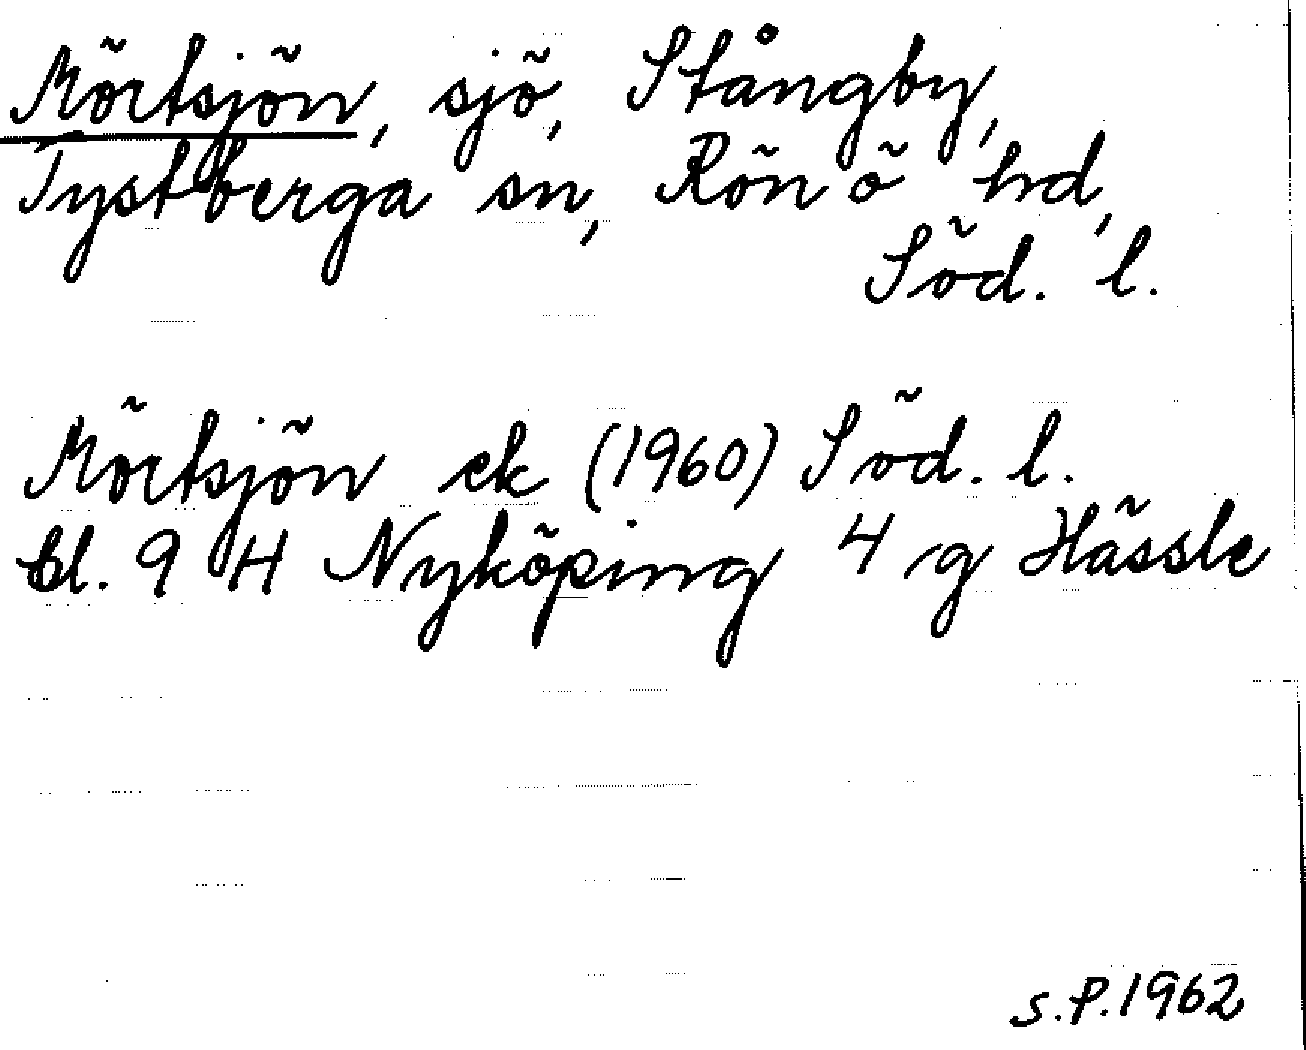 Mörtsjön, sjö, Stångby,
Tystberga sn, Rönö hd,
Söd. l.
Mörtsjön ek (1960) Söd. l.
bl. 9 H Nyköping 4 g Hässle
S.P. 1962